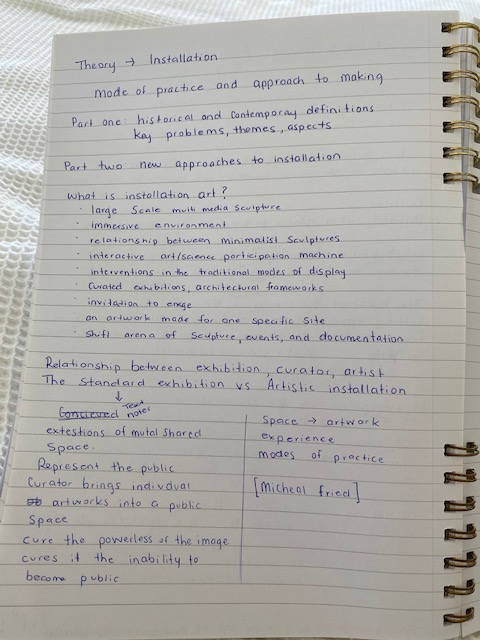 Theory → Installation
mode of practice and approach to making
Part one: historical and contemporay definitions
key problems, themes, aspects
Part two: new approaches to installation
What is installation art?
· large scale multi media sculpture
· immersive environment
· relationship between minimalist sculptures
· interactive art/science participation machine
· interventions in the traditional modes of display
· Curated exhibitions, architectural frameworks
· invitation to enege
an artwork made for one specific site
· shift arena of sculpture, events, and documentation
Relationship between exhibition, curator, artist
The standard exhibition vs Artistic installation
↓
Text notes
extestions of mutal shared
Space.
Represent the public
Curator brings indivdual
artworks into a public
Space
cure the powerless of the image
cures it the inability to
become public
Space → artwork
experience
modes of practice
[Micheal fried]